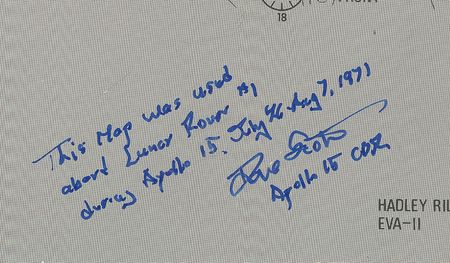 FRONT
18
This Map was used
abord Lunar Rover #1
during Apollo 15. July 26-Aug 7, 1971
Dave Scott
Apollo 15 CDR
HADLEY RIL
EVA-II